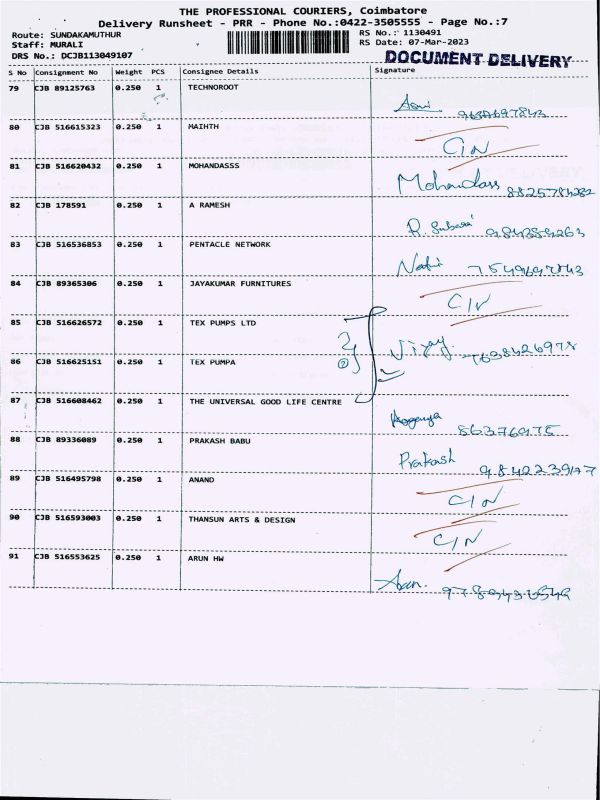 THE PROFESSIONAL COURIERS, Coimbatore
Delivery Runsheet - PRR - Phone No.:0422-3505555 - Page No.:7
Route: SUNDAKAMUTHUR RS No.: 1130491
Staff: MURALI RS Date: 07-Mar-2023
DRS No.: DCJB113049107 DOCUMENT DELIVERY
S No Consignment No Weight PCS Consignee Details Signature
79 CJB 89125763 0.250 1 TECHNOROOT
80 CJB 516615323 0.250 1 MAIHTH
C/N
81 CJB 516620432 0.250 1 MOHANDASSS
Mohandass 8825784282
82 CJB 178591 0.250 1 A RAMESH
83 CJB 516536853 0.250 1 PENTACLE NETWORK
84 CJB 89365306 0.250 1 JAYAKUMAR FURNITURES
C/N
85 CJB 516626572 0.250 1 TEX PUMPS LTD
Vijay 7638426978
86 CJB 516625151 0.250 1 TEX PUMPA
87 CJB 516608462 0.250 1 THE UNIVERSAL GOOD LIFE CENTRE
88 CJB 89336089 0.250 1 PRAKASH BABU
Prakash
89 CJB 516495798 0.250 1 ANAND
C/N
90 CJB 516593003 0.250 1 THANSUN ARTS & DESIGN
C/N
91 CJB 516553625 0.250 1 ARUN HW